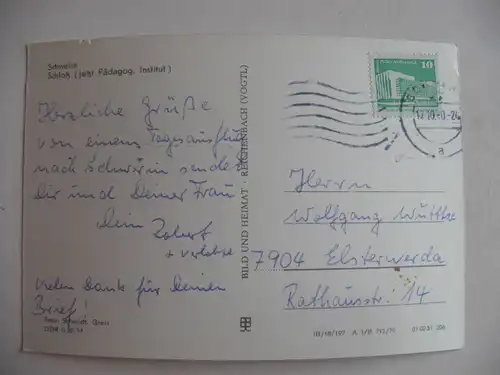 Schwerin
Schloß (jetzt Pädagog. Institut)
Herzliche Grüße
von einem Tagesausflug
nach Schwerin sendet
Dir und Deiner Frau
Dein Robert
+ Verlobte
Vielen Dank für Deinen
Brief!
BILD UND HEIMAT · REICHENBACH (VOGTL)
10
Herrn
Wolfgang Wuttke
7904 Elsterwerda
Rathausstr. 14
Foto: Schmidt, Greiz
III/18/197 A 1/B